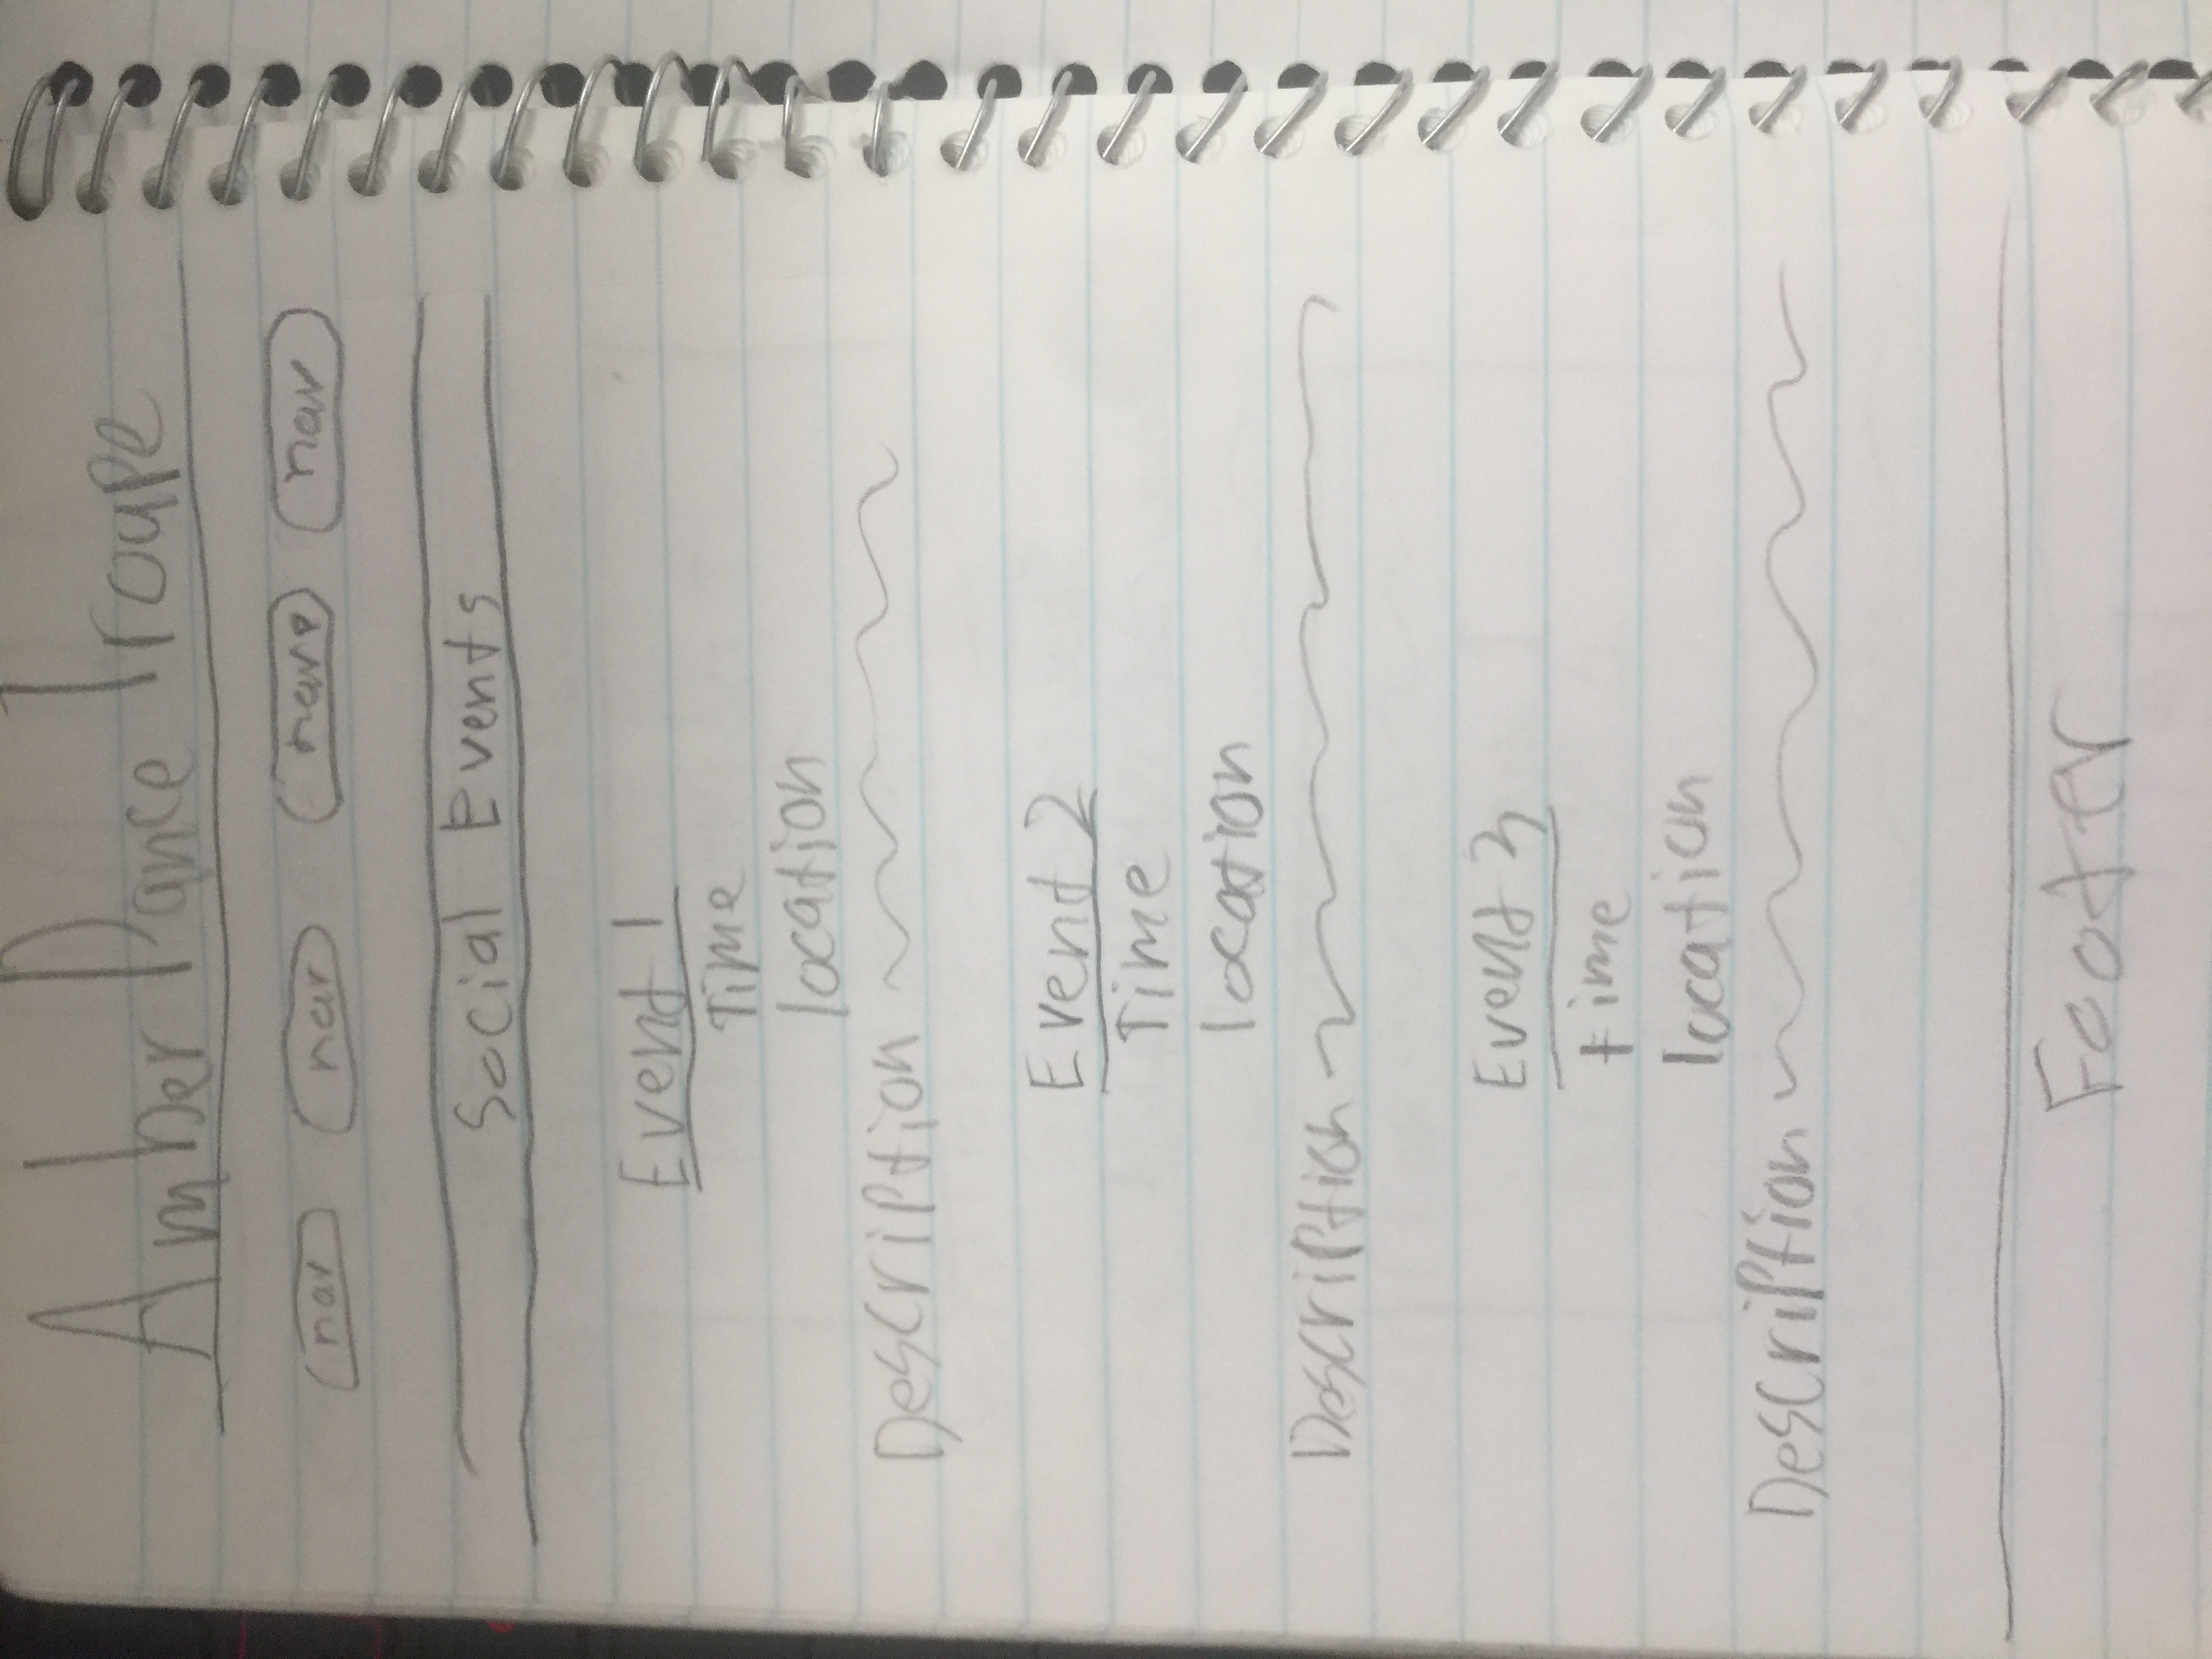 Amber Dance Troupe
nav nav nav nav
Social Events
Event 1
Time
location
Description
Event 2
Time
location
Description
Event 3
time
location
Description
Footer